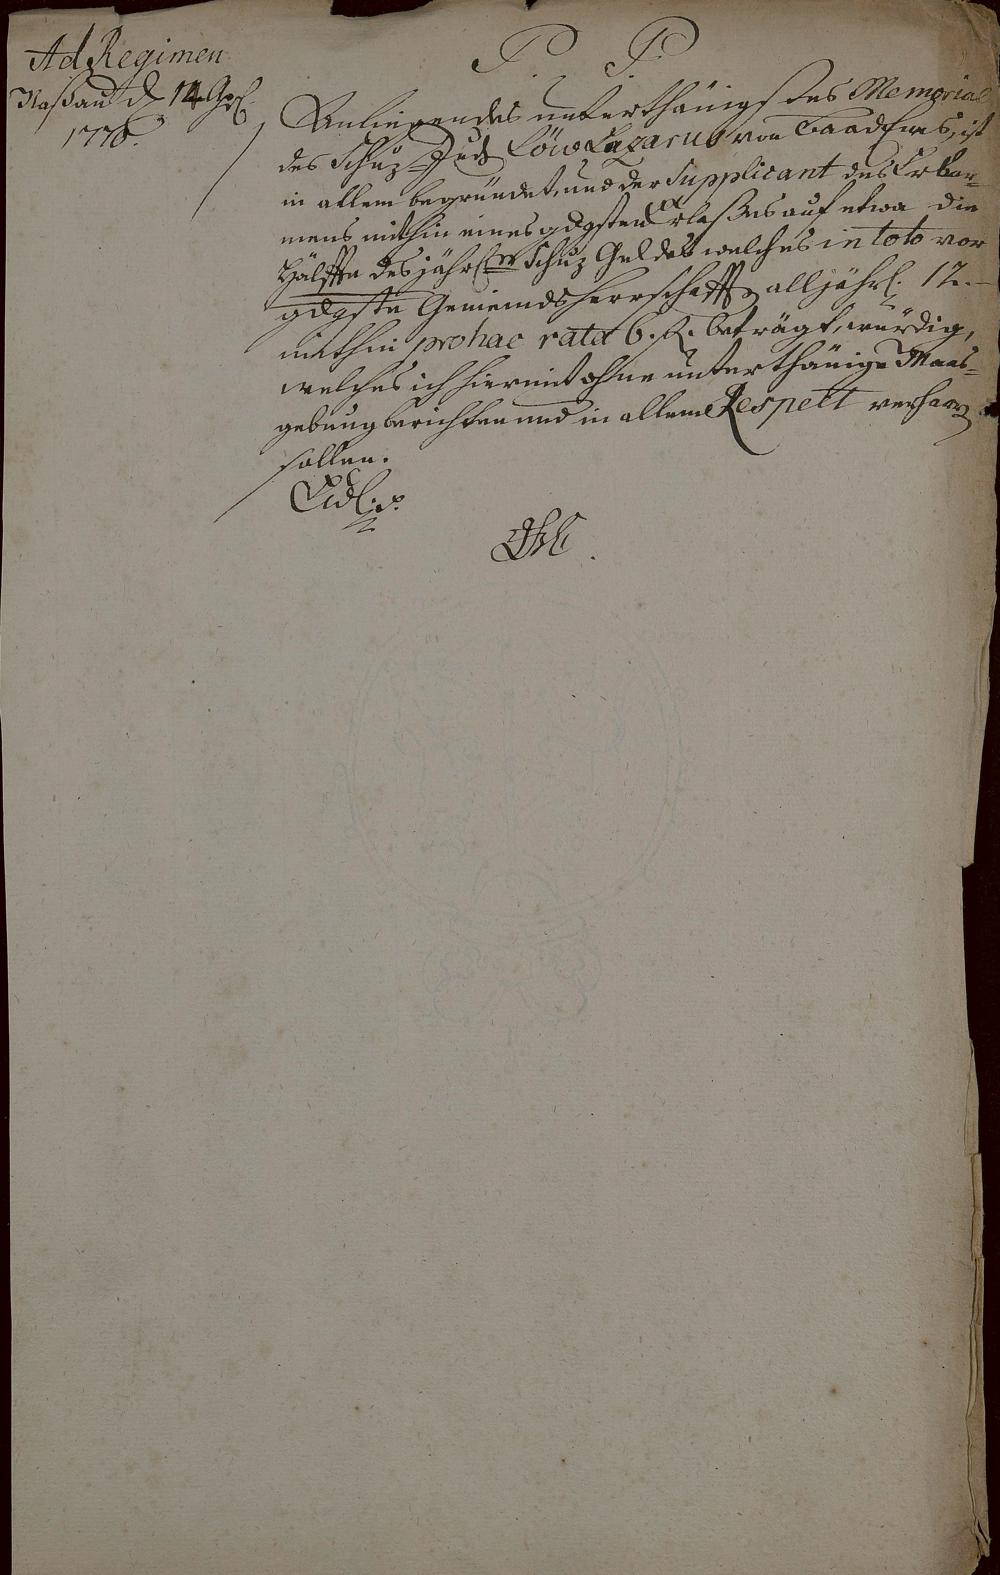 Ad Regimen
Naßau d. 14. Apl.
1778.
P. P.
Anliegendes unterthänigstes Memorial
des Schuz Jud Löw Lazarus von Baad Ems, ist
in allem begründet, und der Supplicant des Erbar-
mens mithin eines gdgsten Erlaßes auf etwa die
Hälffte des jährl. Schuz Geldes welches in toto vor
gdgste Gemeindsherrschafft alljährl. 12.
mithin pro hac rata 6. fl. beträgt, würdig,
welches ich hiermit ohne unterthänige Maas-
gebung berichten und in allem Respect verharr
sollen.